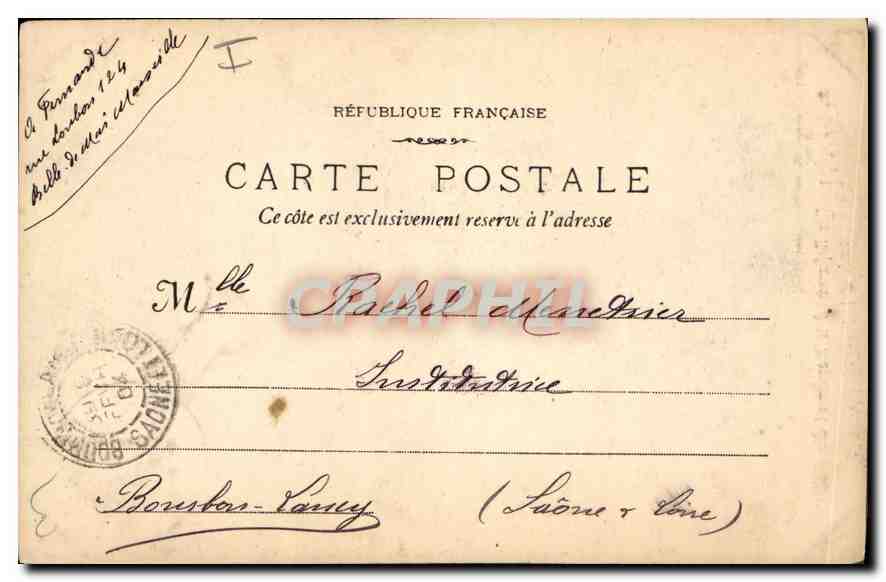 Fernande
rue 124
Belle-de-Mai Marseille
I
RÉPUBLIQUE FRANÇAISE
CARTE POSTALE
Ce côté est exclusivement reservé à l'adresse
Mlle Rachel
CPAPHIL
Institutrice
BOURBON SAONE ET LOIRE
04
Bourbon-Lancy
(Saône & Loire)